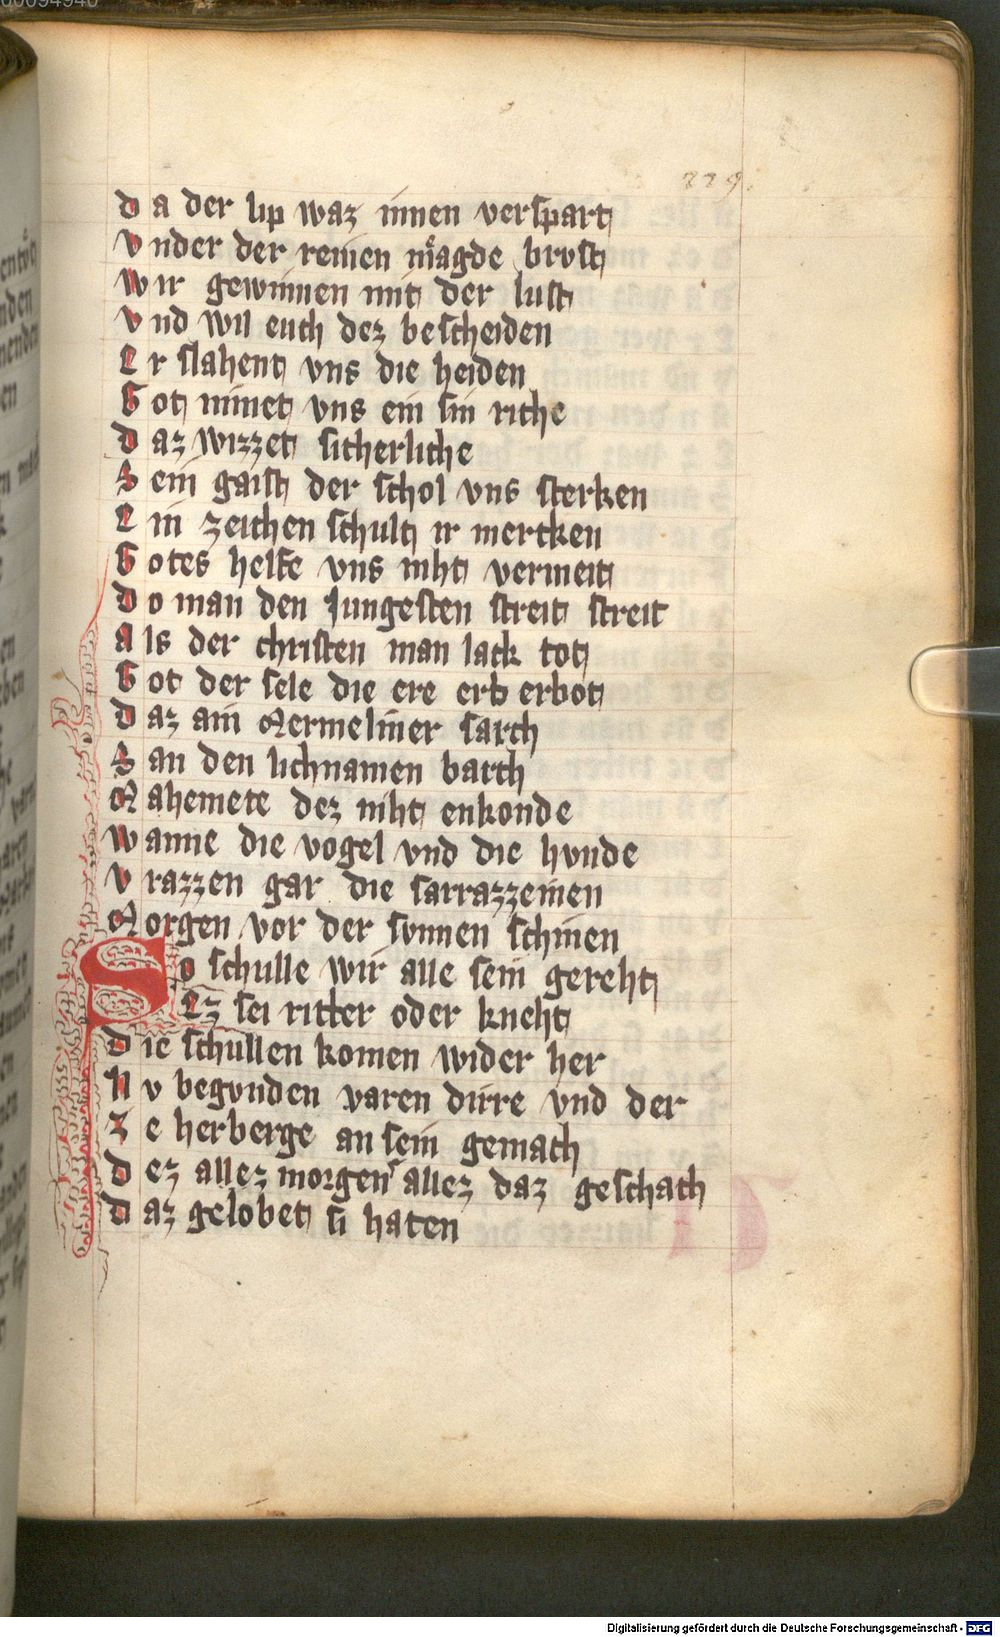 229.
Da der lip waz innen verspart
Vnder der reinen mͤagde brust
Wir gewinnen mit der lust
Vnd wil euch dez bescheiden
Er slahent vns die heiden
Got nimet vns ein sin riche
Daz wizzet sicherliche
Sein gaist der schol vns sterken
Ein zeichen schult ir mercken
Gotes helfe vns niht vermeit
Do man den Jungesten streit streit
Als der christen man lack tot
Got der sele die ere erb erbot
Daz ain Mermeliner sarch
San den lichnamen barch
Mahemete dez niht enkonde
Wanne die vogel vnd die hvnde
Vrazzen gar die sarrazzeinen
Morgen vor der svnnen schinen
So schulle wir alle sein gereht
Ez sei ritter oder kneht
Die schullen komen wider her
Nv begvnden varen dirre vnd der
Ze herberge an sein gemach
Dez allez morgen allez daz geschach
Daz gelobet si haten
Digitalisierung gefördert durch die Deutsche Forschungsgemeinschaft - DFG